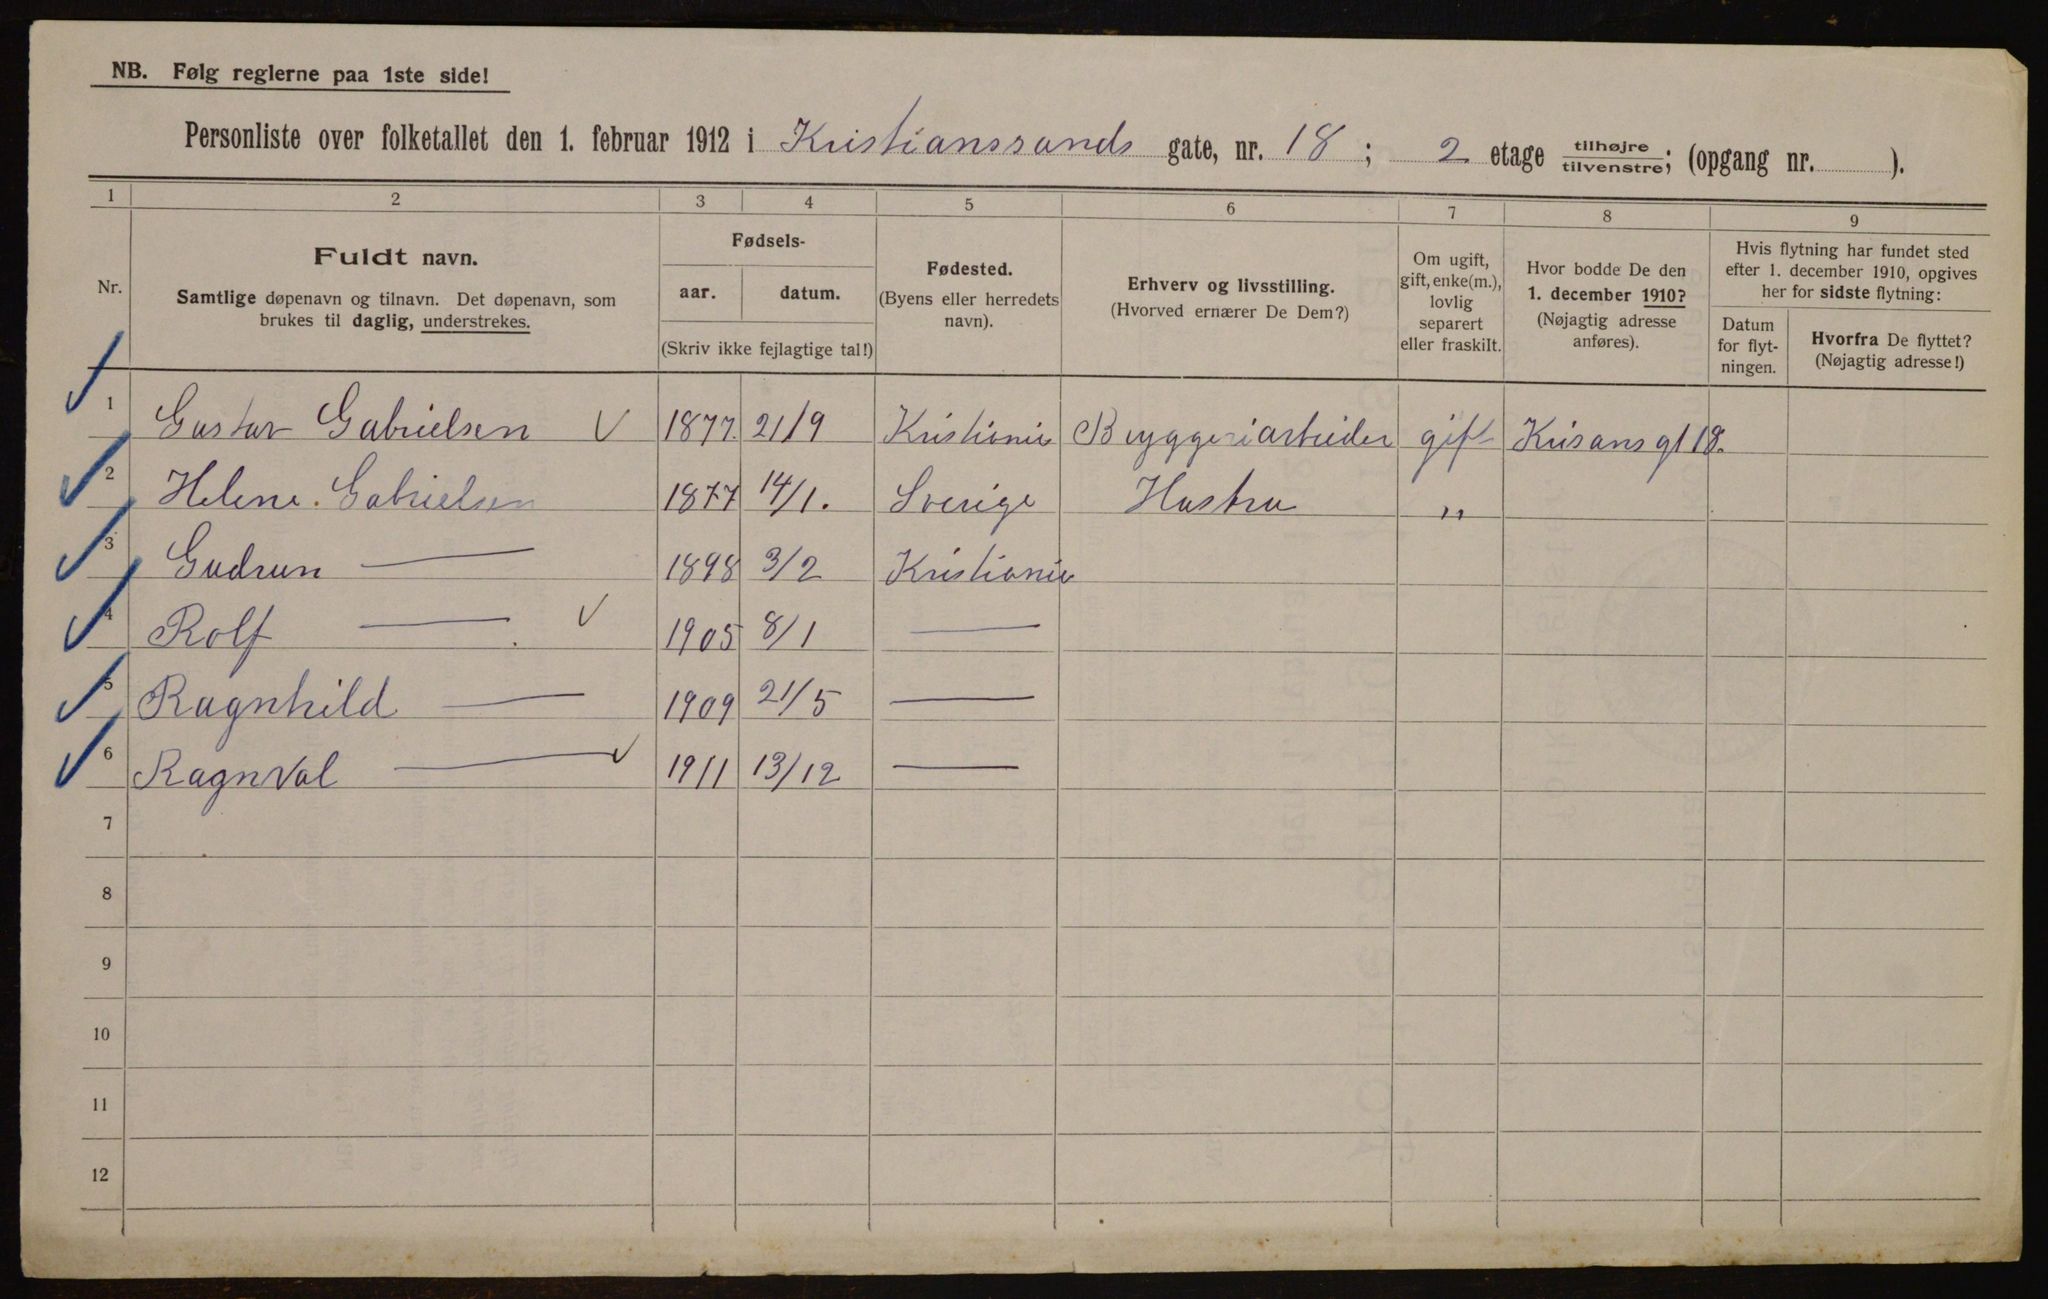 NB. Følg reglerne paa 1ste side!
Personliste over folketallet den 1. februar 1912 i Kristianssands gate, nr. 18; 2 etage tilhøjre/tilvenstre; (opgang nr. ).
1 2 3 4 5 6 7 8 9
Nr.
Fuldt navn.
Samtlige døpenavn og tilnavn. Det døpenavn, som
brukes til daglig, understrekes.
Fødsels-
aar. datum.
(Skriv ikke fejlagtige tal!)
Fødested.
(Byens eller herredets
navn).
Erhverv og livsstilling.
(Hvorved ernærer De Dem?)
Om ugift,
gift, enke(m.),
lovlig
separert
eller fraskilt.
Hvor bodde De den
1. december 1910?
(Nøjagtig adresse
anføres).
Hvis flytning har fundet sted
efter 1. december 1910, opgives
her for sidste flytning:
Datum
for flyt-
ningen.
Hvorfra De flyttet?
(Nøjagtig adresse!)
1 Gustav Gabrielsen 1877. 21/9 Kristiania Bryggeriarbeider gift Krisans gt 18.
2 Helene Gabrielsen 1877 14/1. Sverige Hustru "
3 Gudrun — 1898 3/2 Kristiania
4 Rolf — 1905 8/1 —
5 Ragnhild — 1909 21/5 —
6 Ragnval — 1911 13/12 —
7
8
9
10
11
12